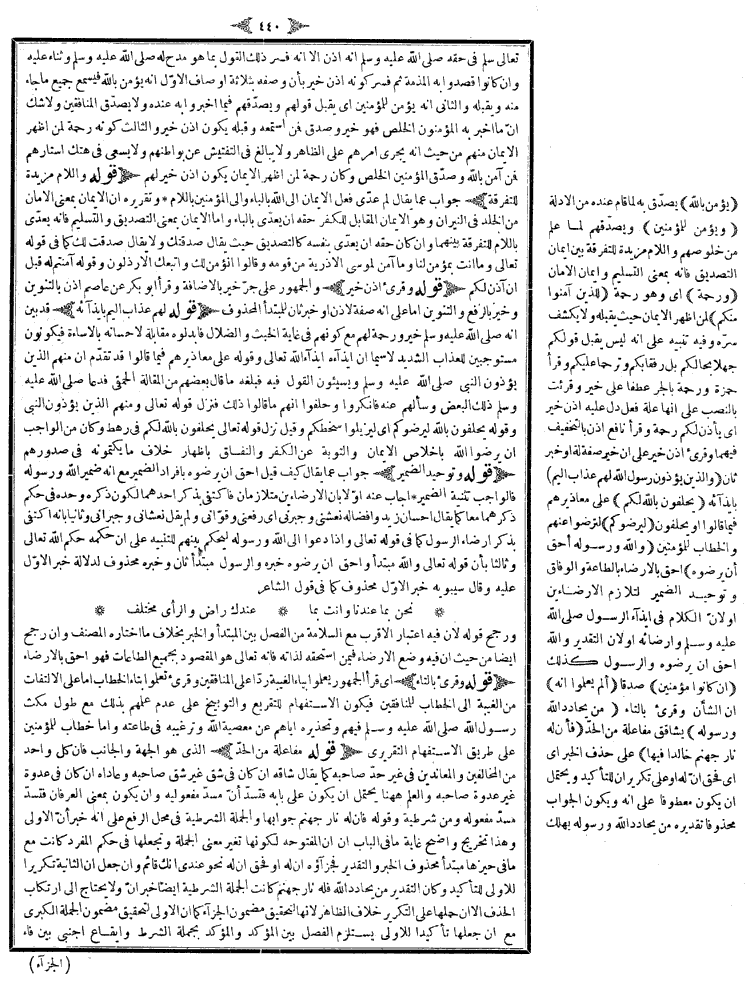 ٤٤٠
تعالى سلم فى حقه صلى الله عليه وسلم انه اذن الا انه فسر ذلك القول بما هو مدح له صلى الله عليه وسلم وثناء عليه
وان كانوا قصدوا به المذمة ثم فسر كونه اذن خير بأن وصفه بثلاثة اوصاف الاوّل انه يؤمن بالله فيسمع جميع ماجاء
منه ويقبله والثانى انه يؤمن للمؤمنين اى يقبل قولهم ويصدّقهم فيما اخبروا به عنده ولا يصدّق المنافقين ولاشك
انّ ما اخبر به المؤمنون الخلص فهو خير وصدق فمن استمعه وقبله يكون اذن خير والثالث كونه رحمة لمن اظهر
الايمان منهم من حيث انه يجرى امرهم على الظاهر ولا يبالغ فى التفتيش عن بواطنهم ولا يسعى فى هتك استارهم
فمن آمن بالله وصدّق المؤمنين الخلص وكان رحمة لمن اظهر الايمان يكون اذن خير لهم ﴿ قوله واللام مزيدة
للتفرقة ﴾ جواب عما يقال لم عدّى فعل الايمان الى الله بالباء والى المؤمنين باللام * وتقريره ان الايمان بمعنى الامان
من الخلد فى النيران وهو الايمان المقابل للكفر حقه ان يعدّى بالباء واما الايمان بمعنى التصديق والتسليم فانه يعدّى
باللام للتفرقة بينهما وان كان حقه ان يعدّى بنفسه كالتصديق حيث يقال صدقتك ولا يقال صدقت لك كما فى قوله
تعالى وما انت بمؤمن لنا وما آمن لموسى الا ذرية من قومه وقالوا انؤمن لك واتبعك الارذلون وقوله آمنتم له قبل
ان آذن لكم ﴿ قوله وقرئ اذن خير ﴾ والجمهور على جرّ خير بالاضافة وقرأ ابو بكر عن عاصم اذن بالتنوين
وخير بالرفع والتنوين اما على انه صفة لاذن او خبر ثان للمبتدأ المحذوف ﴿ قوله لهم عذاب اليم بايذائه ﴾ قد بين
انه صلى الله عليه وسلم خير ورحمة لهم مع كونهم فى غاية الخبث والضلال فابدلوه مقابلة لاحسانه بالاساءة فيكونون
مستوجبين للعذاب الشديد لاسيما ان ايذآءه ايذآء الله تعالى وقوله على معاذيرهم فيما قالوا قد تقدّم ان منهم الذين
يؤذون النبى صلى الله عليه وسلم ويسيئون القول فيه فبلغه ما قال بعضهم من المقالة الحمقى فدعا صلى الله عليه
وسلم ذلك البعض وسألهم عنه فانكروا وحلفوا انهم ما قالوا ذلك فنزل قوله تعالى ومنهم الذين يؤذون النبى
وقوله يحلفون بالله ليرضوكم اى ليزيلوا سخطكم وقيل نزل قوله تعالى يحلفون بالله لكم فى رهط وكان من الواجب
ان يرضوا الله باخلاص الايمان والتوبة عن الكفر والنفاق باظهار خلاف ما يكتمونه فى صدورهم
﴿ قوله وتوحيد الضمير ﴾ جواب عما يقال كيف قيل احق ان يرضوه بافراد الضمير مع انه ضمير الله ورسوله
فالواجب تثنية الضمير * اجاب عنه اولا بان الارضاءين متلازمان فاكتفى بذكر احدهما لكون ذكره وحده فى حكم
ذكرهما معا كما يقال احسان زيد وافضاله نعشنى وجبرنى اى رفعنى وقوّانى ولم يقل نعشانى وجبرانى وثانيا بانه اكتفى
بذكر ارضاء الرسول كما فى قوله تعالى واذا دعوا الى الله ورسوله ليحكم بينهم للتنبيه على ان حكمه حكم الله تعالى
وثالثا بأن قوله تعالى والله مبتدأ واحق ان يرضوه خبره والرسول مبتدأ ثان وخبره محذوف لدلالة خبر الاوّل
عليه وقال سيبويه خبر الاوّل محذوف كما فى قول الشاعر
* نحن بما عندنا وانت بما * عندك راض والرأى مختلف *
ورجح قوله لان فيه اعتبار الاقرب مع السلامة من الفصل بين المبتدأ والخبر بخلاف ما اختاره المصنف وان رجح
ايضا من حيث ان فيه وضع الارضاء فيمن استحقه لذاته فانه تعالى هو المقصود بجميع الطاعات فهو احق بالارضاء
﴿ قوله وقرئ بالتاء ﴾ اى قرأ الجمهور يعلموا بياء الغيبة ردّا على المنافقين وقرئ تعلموا بتاء الخطاب اما على الالتفات
من الغيبة الى الخطاب للمنافقين فيكون الاستفهام للتقريع والتوبيخ على عدم علمهم بذلك مع طول مكث
رسول الله صلى الله عليه وسلم فيهم وتحذيره اياهم عن معصية الله وترغيبه فى طاعته واما خطاب للمؤمنين
على طريق الاستفهام التقريرى ﴿ قوله مفاعلة من الحدّ ﴾ الذى هو الجهة والجانب فان كل واحد
من المخالفين والمعاندين فى غير حدّ صاحبه كما يقال شاقه ان كان فى شق غير شق صاحبه وعاداه ان كان فى عدوة
غير عدوة صاحبه والعلم ههنا يحتمل ان يكون على بابه فتسدّ أنّ مسدّ مفعوليه وان يكون بمعنى العرفان فتسدّ
مسدّ مفعوله ومن شرطية وقوله فان له نار جهنم جوابها والجملة الشرطية فى محل الرفع على انه خبر أنّ الاولى
وهذا تخريج واضح غاية ما فى الباب ان ان المفتوحه لكونها تغير معنى الجملة وتجعلها فى حكم المفرد كانت مع
ما فى حيزها مبتدأ محذوف الخبر والتقدير فجزآؤه ان له او فحق ان له نحو عندى انك قائم وان جعل ان الثانية تكريرا
للاولى للتأكيد وكان التقدير من يحادد الله فله نار جهنم كانت الجملة الشرطية ايضا خبر انّ ولا يحتاج الى ارتكاب
الحذف الا ان حملها على التكرير خلاف الظاهر لانها لتحقيق مضمون الجزآء كما ان الاولى لتحقيق مضمون الجملة الكبرى
مع ان جعلها تأكيدا للاولى يستلزم الفصل بين المؤكد والمؤكد بجملة الشرط وايقاع اجنبى بين فاء
( الجزآء )
( يؤمن بالله ) يصدّق به لما قام عنده من الادلة
( ويؤمن للمؤمنين ) ويصدّقهم لما علم
من خلوصهم واللام مزيدة للتفرقة بين ايمان
التصديق فانه بمعنى التسليم وايمان الامان
( ورحمة ) اى وهو رحمة ( للذين آمنوا
منكم ) لمن اظهر الايمان حيث يقبله ولا يكشف
سره وفيه تنبيه على انه ليس يقبل قولكم
جهلا بحالكم بل رفقا بكم وترحما عليكم وقرأ
حمزة ورحمة بالجر عطفا على خير وقرئت
بالنصب على انها علة فعل دل عليه اذن خير
اى يأذن لكم رحمة وقرأ نافع اذن بالتخفيف
فيهما وقرئ اذن خير على ان خير صفة له او خبر
ثان ( والذين يؤذون رسول الله لهم عذاب اليم )
بايذآئه ( يحلفون بالله لكم ) على معاذيرهم
فيما قالوا او تخلفوا ( ليرضوكم ) لترضوا عنهم
والخطاب للمؤمنين ( والله ورسوله أحق
أن يرضوه ) احق بالارضاء بالطاعة والوفاق
وتوحيد الضمير لتلازم الارضاءين
او لان الكلام فى ايذآء الرسول صلى الله
عليه وسلم وارضائه او لان التقدير والله
احق ان يرضوه والرسول كذلك
( ان كانوا مؤمنين ) صدقا ( ألم يعلموا انه )
ان الشأن وقرئ بالتاء ( من يحادد الله
ورسوله ) يشاقق مفاعلة من الحدّ ( فأن له
نار جهنم خالدا فيها ) على حذف الخبر اى
اى فحق ان له او على تكرير ان للتأكيد ويحتمل
ان يكون معطوفا على انه ويكون الجواب
محذوفا تقديره من يحادد الله ورسوله يهلك